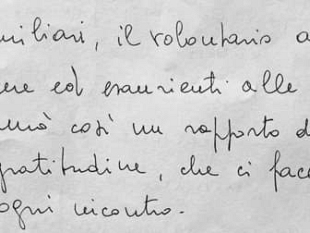 miliari, il volontario a
ere ed esaurienti alle
così un rapporto d
gratitudine, che ci face
ogni incontro.